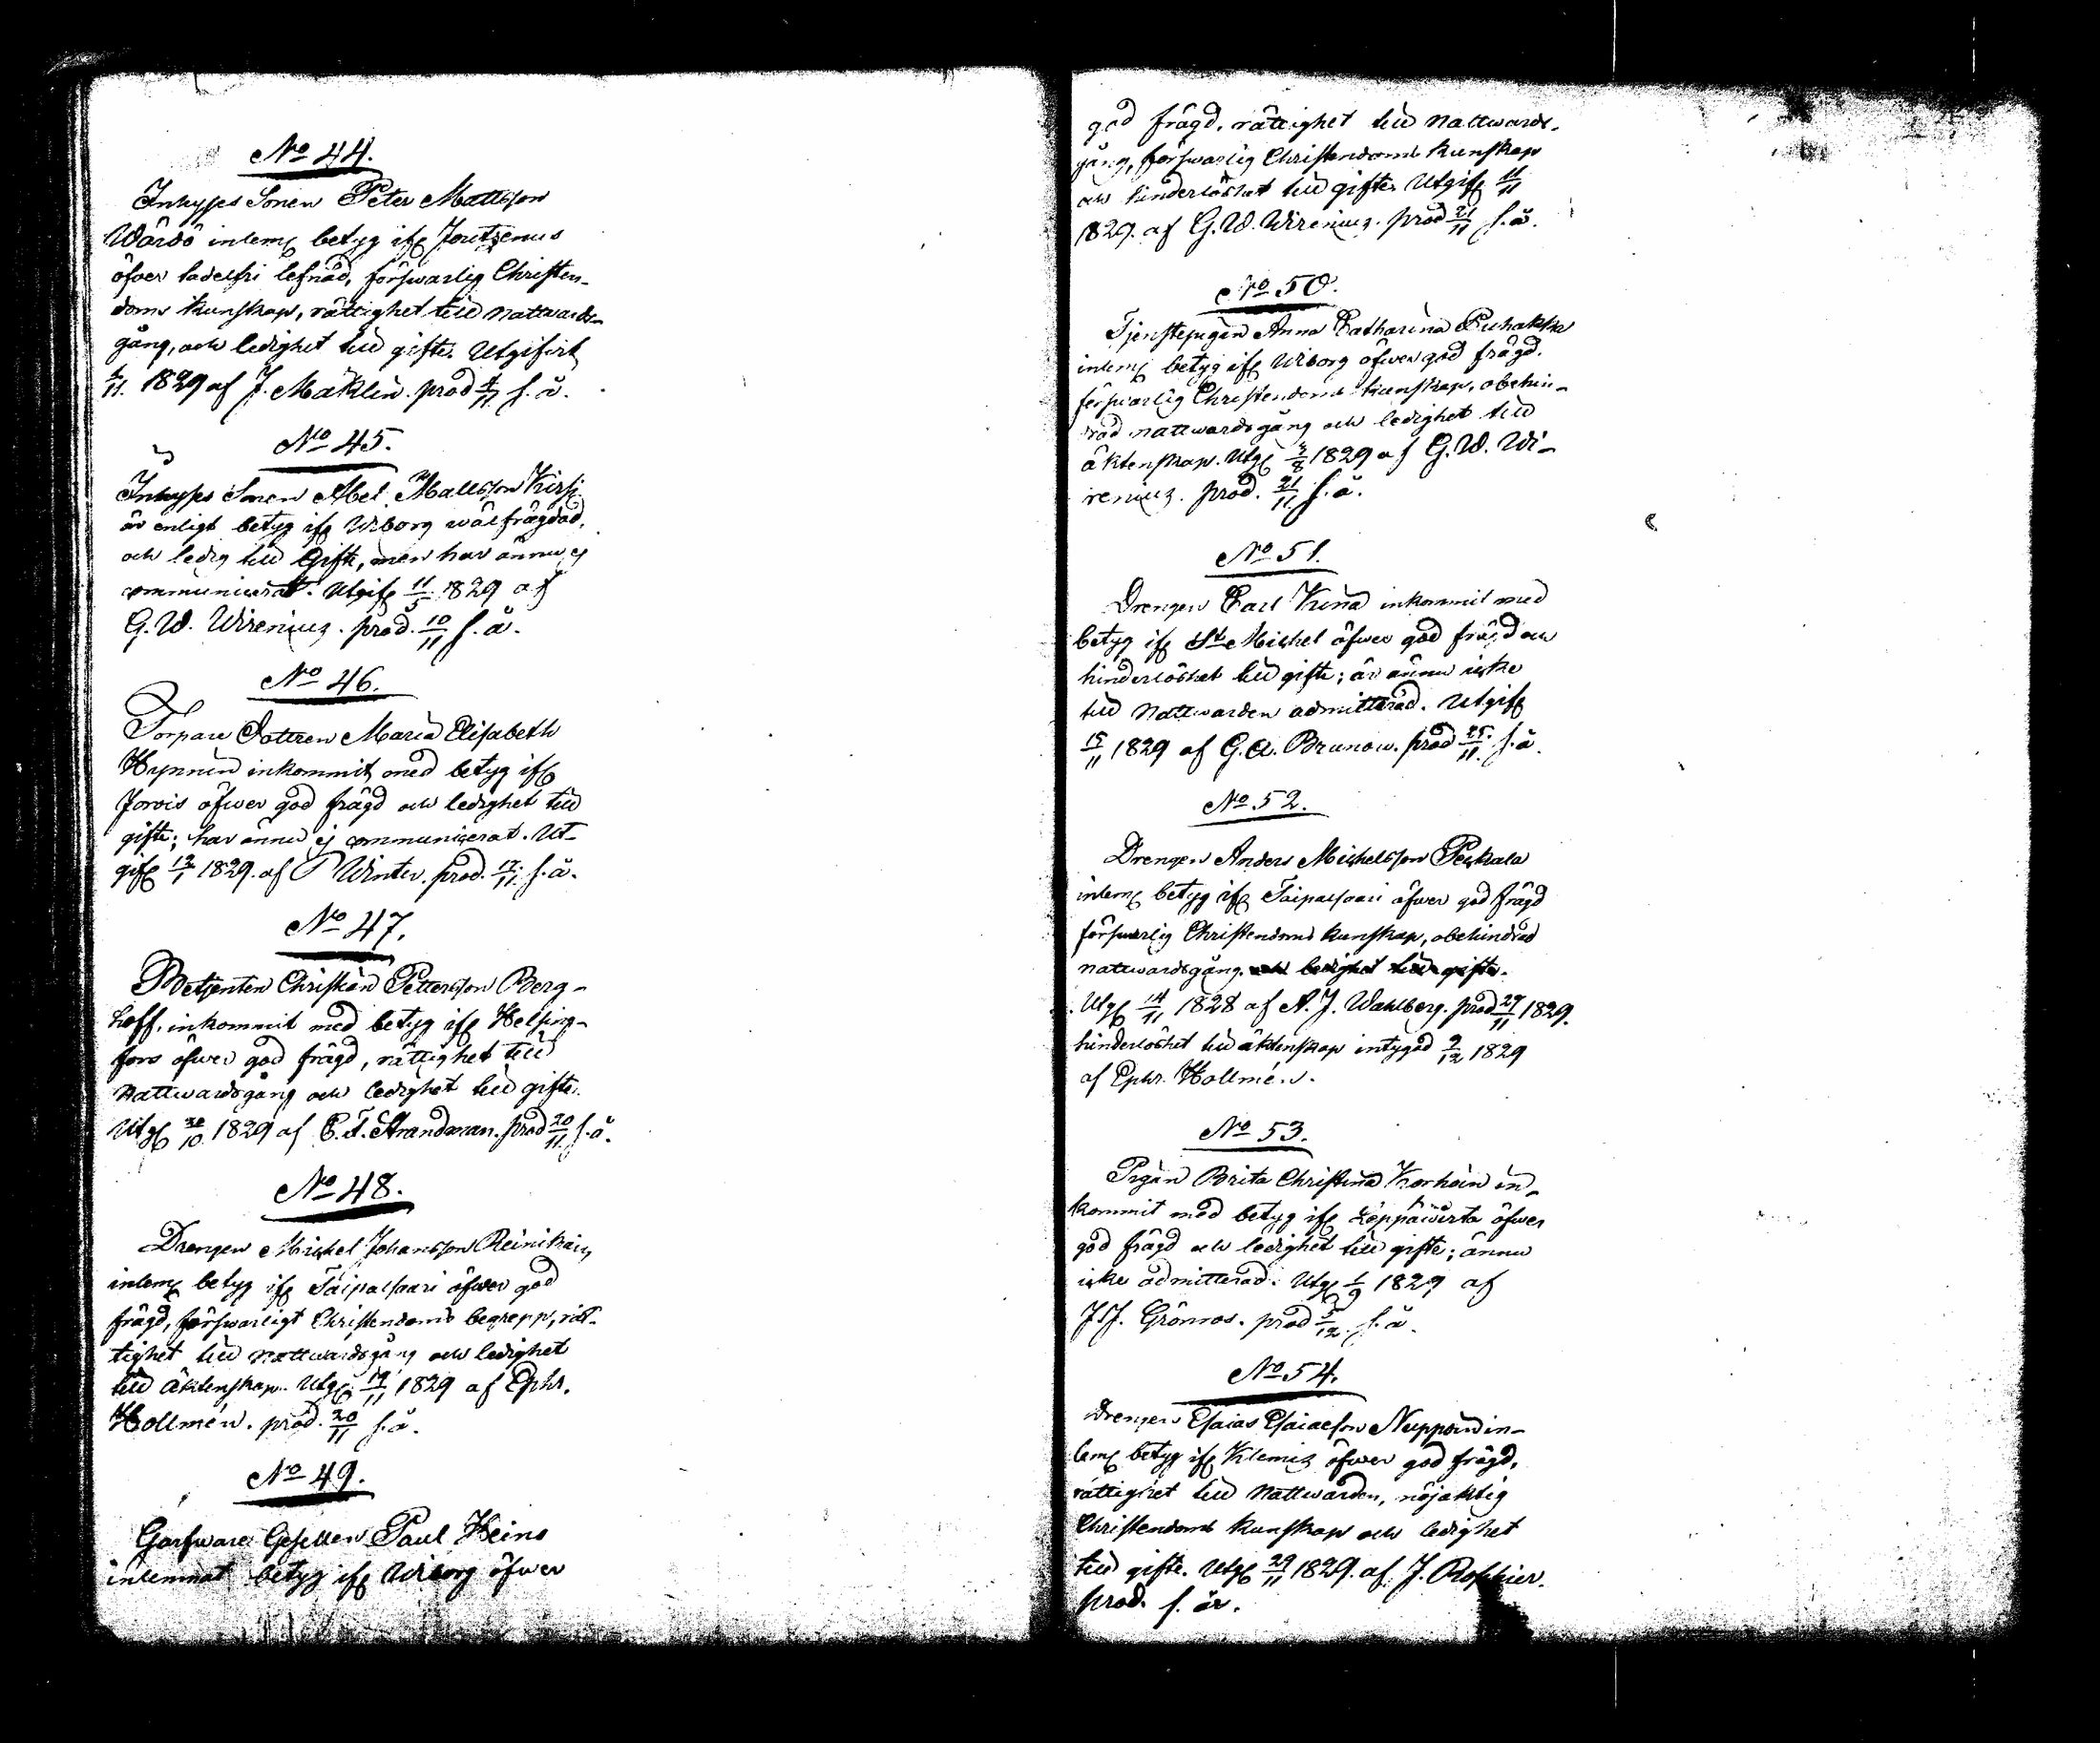 No 44.
Inhyses Sonen Peter Mattsson
Wärdö inlemn betyg ifr Joutzenus
öfver ladelfri lefnad, försvarlig Christen-
doms kunskap, rättighet till nattwards-
gång, och ledighet till gifte. Utgifvit
11. 1829 af J. Maklin. prod 4/11 s. å.
No 45.
Inhyses Sonen Abel Mattsson Kirsi
är enligt betyg ifr Wiborg wälfrägdad,
och ledig till Gifte, men har ännu ej
communicerat. Utgif 11/5 1829 af
G. W. Wirenius. prod. 10/11 s. å.
No 46.
Torpare Dottren Maria Elisabeth
Hynnin inkommit med betyg ifr
Jorois öfwer god frägd och ledighet till
gifte; har ännu ej communicerat. Ut-
gif 12/1 1829. af P Winter. prod. 17/11. s. å.
No 47.
Betjenten Christian Pettersson Berg-
hoff, inkommit med betyg ifr Helsing-
fors öfwer god frägd, rättighet till
Nattwardsgång och ledighet till gifte.
Utgf 30/10 1829 af C. T. Strandman. prod 20/11. s. å.
No 48.
Drengen Michel Johansson Reinikain
inlemn betyg ifr Taipalsaari öfwer god
frägd, försvarligt Christendoms begrepp, rät-
tighet till Nattwardsgång och ledighet
till äktenskap. Utgf 19/11 1829 af Ephr.
Hollmén. prod. 20/11 s. å.
No 49.
Garfware Gesellen Paul Heins
inlemnat betyg ifr Wiborg öfwer
god frägd, rättighet till Nattwards-
gång, försvarlig Christendoms kunskap
och hinderlöshet till gifte. Utgif 11/11
1829. af G. W. Wirenius. prod 21/11 s. å.
No 50.
Tjenstepigan Anna Catharina Puhakka
inlemn betyg ifr Wiborg öfwer god frägd.
försvarlig Christendoms kunskap, obehin-
rad nattwardsgång och ledighet till
äktenskap. Utgf 3/8 1829 af G. W. Wi-
renius. prod. 21/11 s. å.
No 51.
Drengen Carl Kuna inkommit med
betyg ifr St Michel öfwer god frägd och
hinderlöshet till gifte; är ännu icke
till Nattwarden admitterad. Utgif
15/11 1829 af G. A. Brunow. prod 25./11. s. å.
No 52.
Drengen Anders Michelsson Peckala
inlemn betyg ifr Taipalsaari öfwer god frägd
försvarlig Christendoms kunskap, obehindrad
nattwardsgång. och ledighet till gifte.
Utgf 14/11 1828 af A. J. Wahlberg. prod 27/11 1829.
hinderlöshet till äktenskap intygad 9/12 1829
af Ephr. Hollmén.
No 53.
Pigan Brita Christina Korhoin in-
kommit med betyg ifr Leppäwirta öfwer
god frägd och ledighet till gifte; ännu
icke admitterad. Utgf 1/9 1829 af
J. J. Grönroos. prod 5/12. s. å.
No 54.
Drengen Esaias Esaiasson Nuppoin in-
lemn betyg ifr Klemis öfwer god frägd,
rättighet till Nattwarden, nöjaktig
Christendoms kunskap och ledighet
till gifte. Utgf 29/11 1829. af J. Roschier.
prod. s. år.